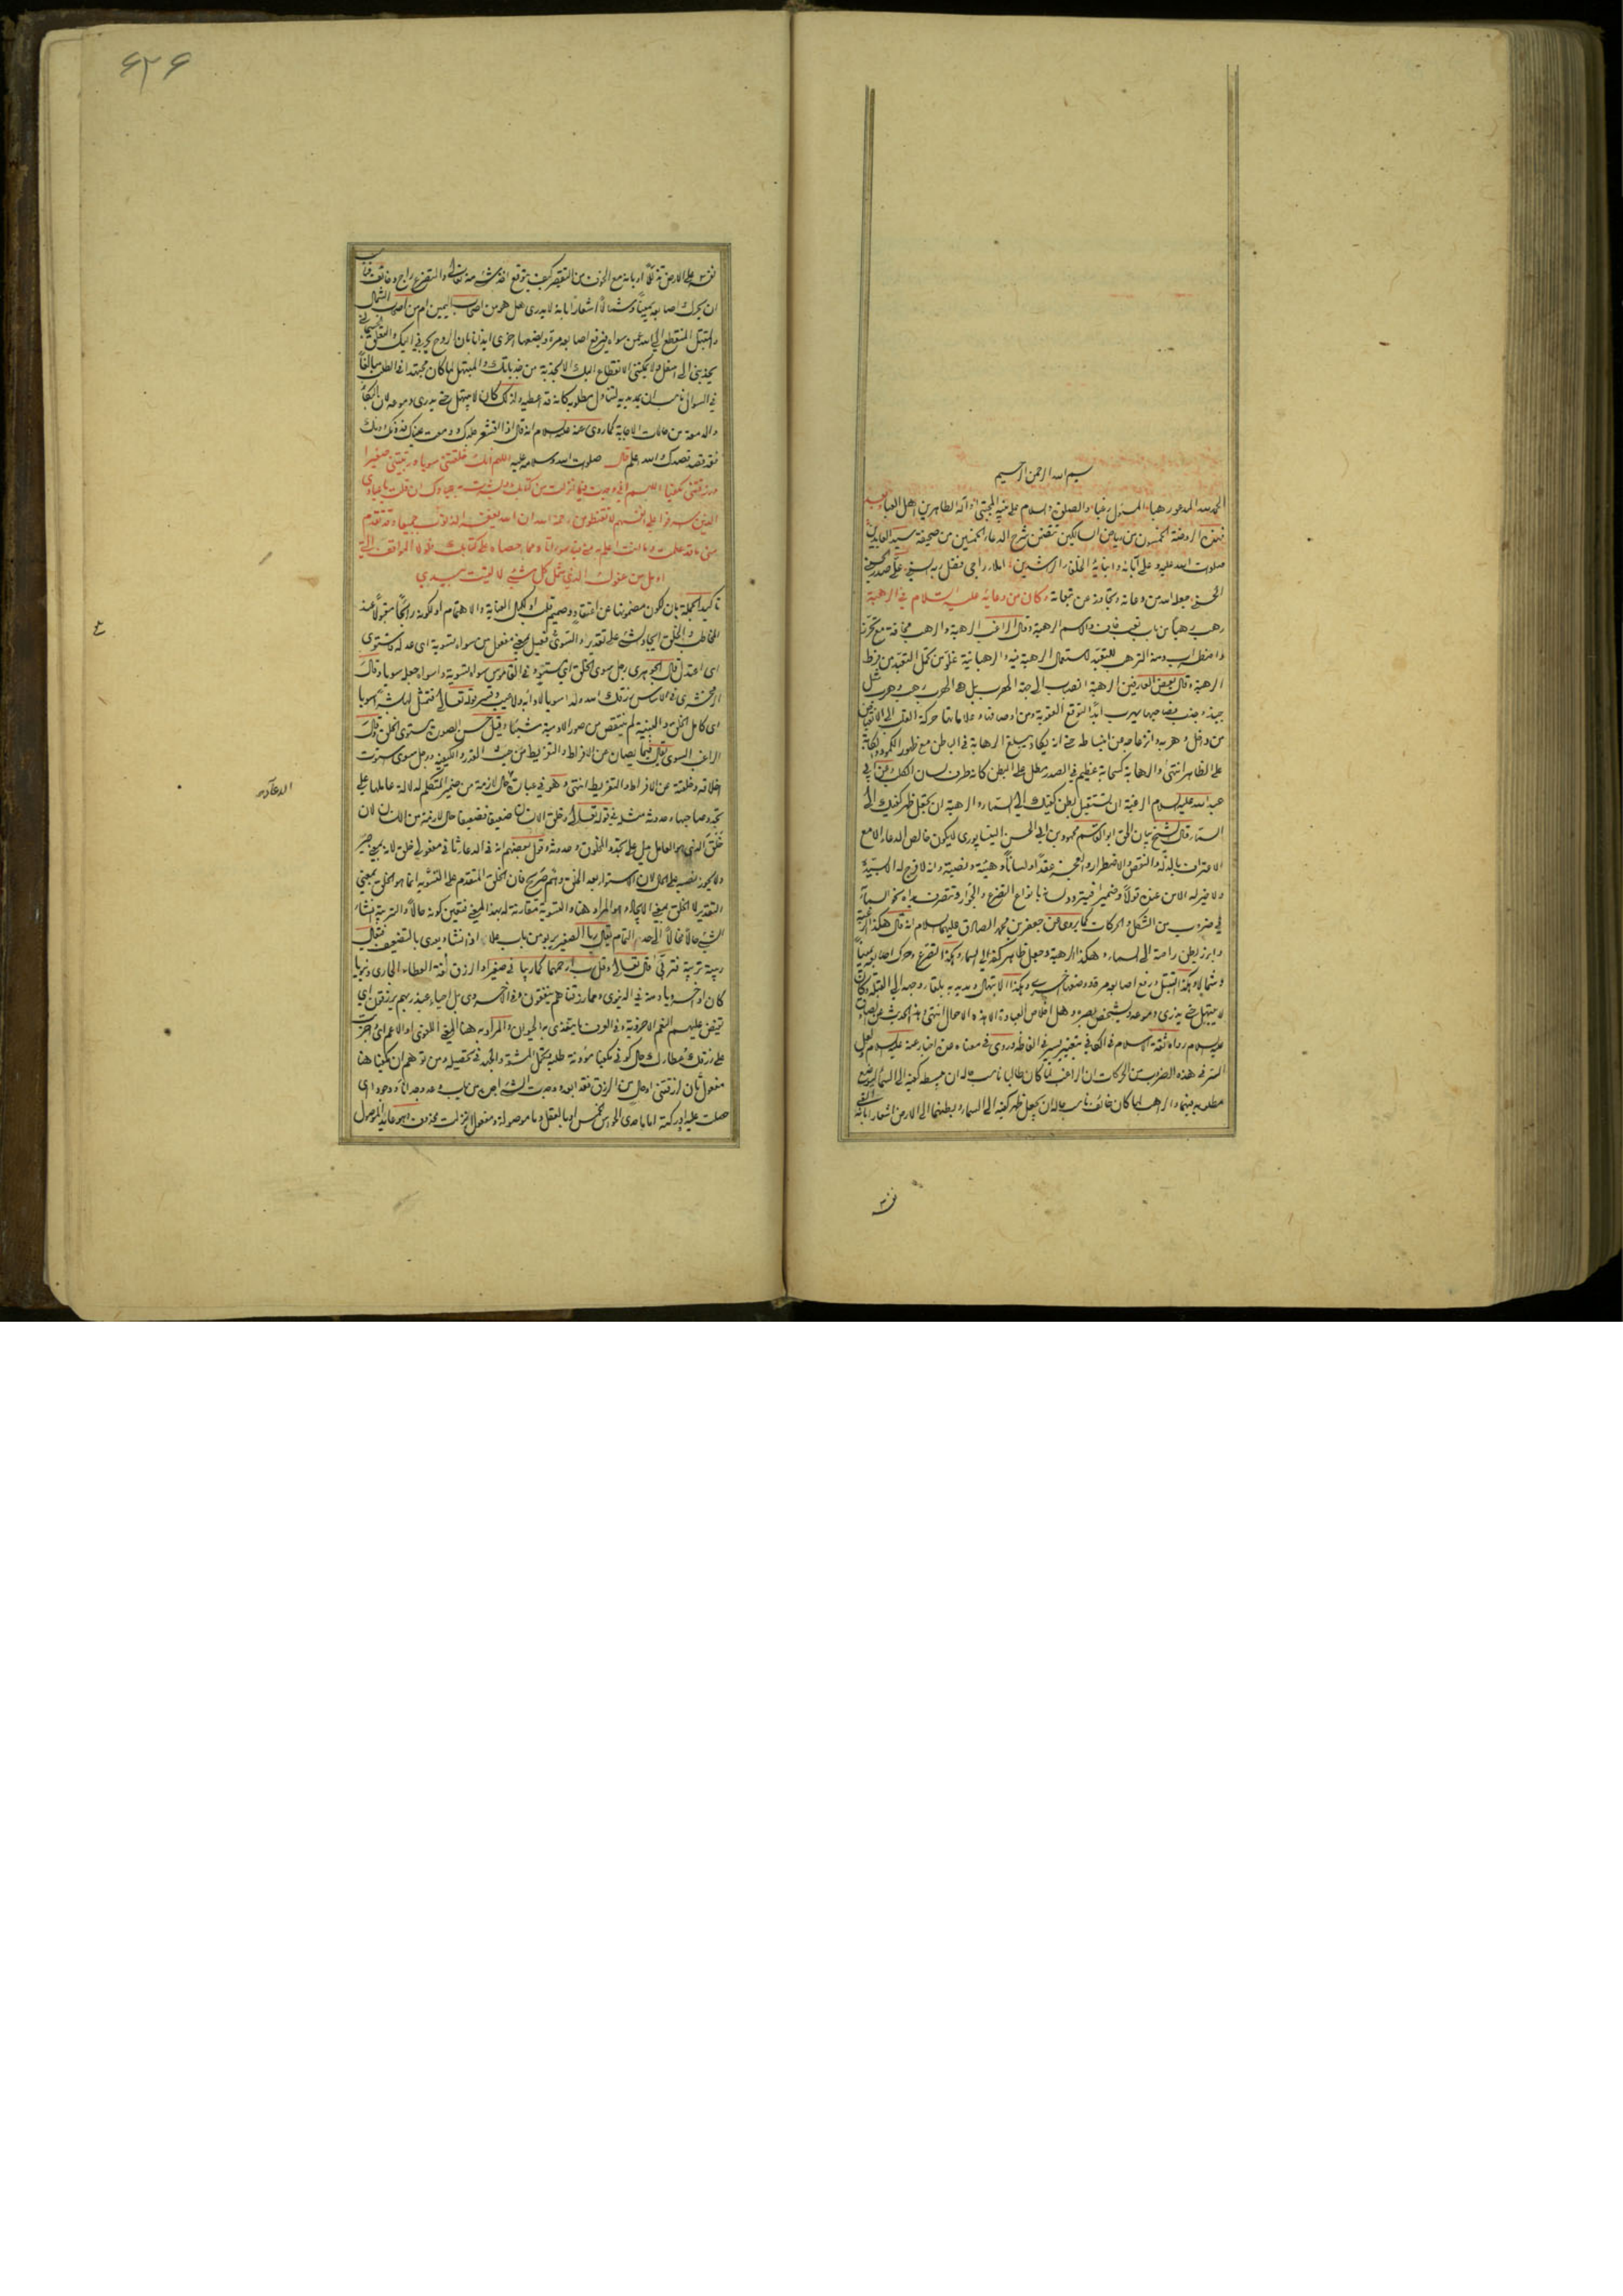 بسم الله الرحمن الرحيم
الحمد لله المدعو رهبا المسئول رغبا والصلوة والسلام على نبيه المجتبى وآله الطاهرين اهل العبا وبعد
فهذه الروضة الخمسون من رياض السالكين تتضمن شرح الدعاء الخمسين من صحيفة سيد العابدين
صلوات الله عليه وعلى آبائه وابنائه الخلفاء الراشدين املاء راجي فضل ربه السني على صدر الدين الحسيني
الحسني جعله الله من دعاته وتجاوز عن تبعاته وكان من دعائه عليه السلام في الرهبة
رهب رهبا من باب تعب خاف والاسم الرهبة وقال الراغب الرهبة والرهب مخافة مع تحرز
واضطراب ومنه الترهب للتعبد لاستعمال الرهبة فيه والرهبانية غلو من تحمل التعبد من فرط
الرهبة وقال بعض العارفين الرهبة انصباب الى جهة الهرب بل هي الهرب رهب وهرب مثل
جبذ وجذب فصاحبها يهرب ابدا لتوقع العقوبة ومن اوصافها وعلاماتها حركة القلب الى الانقباض
من داخل وهربه وانزعاجه عن انبساطه حتى انه يكاد يبلغ الرهابة في الباطن مع ظهور الكمد والكآبة
على الظاهر انتهى والرهابة كسحابة عظيم في الصدر مطل على البطن كانه طرف لسان الكلب وعن ابي
عبد الله عليه السلام الرغبة ان تستقبل ببطن كفيك الى السماء والرهبة ان تجعل ظهر كفيك الى
السماء قال الشيخ بيان الحق ابو القاسم محمود بن ابي الحسن النيسابوري لا يكون خالص الدعاء الا مع
الاعتراف بالذلة والنقص والاضطرار والعجز عقدا ولسانا وهيئة ونصبة وانه لا فرج له الا بسيبه
ولا خير له الا من عنده قولا وضميرا فيتردد لسانه بانواع التضرع والجوار وتتصرف يداه نحو السماء
في ضروب من الشكل والحركات كما يروى عن جعفر بن محمد الصادق عليهما السلام انه قال هكذا الرغبة
وابرز بطن راحته الى السماء وهكذا الرهبة وجعل ظاهر كفه الى السماء وهكذا التضرع وحرك اصابعه يمينا
وشمالا وهكذا التبتل ورفع اصابعه مرة ووضعها اخرى وهكذا الابتهال ومد يديه بلقاء وجهه الى القبلة وكان
لا يبتهل حتى يذرى دموعه ويشخص بصره وهل اخلاص العبادة الا هذه الاحوال انتهى وهذا الحديث عن الصادق
عليه السلام رواه ثقة الاسلام في الكافي بتغيير يسير في الفاظه وروى في معناه عدة اخبار عنه عليه السلام ولعل
السر في هذه الضروب من الحركات ان الراغب لما كان طالبا ناسب حاله ان يبسط كفيه الى السماء ليوضع
مطلوبه فيهما والراهب لما كان خائفا ناسب حاله ان يجعل ظهر كفيه الى السماء وبطنهما الى الارض اشعارا بانه القى
نفسه
۶۲۶
نفسه على الارض تذللا او بانه مع الخوف من التقصير كيف يتوقع اخذ شيء منه تعالى والتضرع راج وخائف فناسب
ان يحرك اصابعه يمينا وشمالا اشعارا بانه لا يدري اهل هو من اصحاب اليمين ام من اصحاب الشمال
والتبتل المنقطع الى الله عمن سواه فيرفع اصابعه مرة ويضعها اخرى ايذانا بان الروح يجرني اليك والتعلق الجسماني
يجذبني الى اسفل ولا يمكنني الانقطاع اليك الا بجذبة من جذباتك والمبتهل لما كان مجتهدا في الطلب مبالغا
في السؤال ناسب ان يمد يديه لتناول مطلوبه كانه قد اعطيه ولذلك كان لا يبتهل حتى يذرى دموعه لان البكاء
والدمعة من علامات الاجابة كما روى عنه عليه السلام انه قال اذا اقشعر جلدك ودمعت عيناك فدونك دونك
فقد قصد قصدك والله اعلم قال صلوات الله وسلامه عليه اللهم انك خلقتني سويا وربيتني صغيرا
ورزقتني مكفيا اللهم اني وجدت فيما انزلت من كتابك وبشرت به عبادك ان قلت يا عبادي
الذين اسرفوا على انفسهم لا تقنطوا من رحمة الله ان الله يغفر الذنوب جميعا وقد تقدم
مني ما قد علمت وما انت اعلم به مني فيا سوأتا مما احصاه علي كتابك فلولا المواقف التي
اؤمل من عفوك الذي شمل كل شيء لالقيت بيدي
تاكيد الجملة بان لكون مضمونها عن اعتقاد وصميم قلب او لكمال العناية والاهتمام او لكونه رائجا مقبولا عند
المخاطب والخلق ايجاد الشيء على تقدير والسوي فعيل بمعنى مفعول من سواه تسوية اي عدله فاستوى
اي اعتدل قال الجوهري رجل سوي الخلق اي مستو وفي القاموس سواه تسوية واسواه جعله سويا وقال
الزمخشري في الاساس رزقك الله ولدا سويا لا داء به ولا عيب وفسر قوله تعالى فتمثل لها بشرا سويا
اي كامل الخلق سوي البنية لم ينتقص من صورة الآدمية شيئا وقيل حسن الصورة مستوي الخلق وقال
الراغب السوي يقال فيما يصان عن الافراط والتفريط من حيث القدر والكيفية ورجل سوي استوت
اخلاقه وخلقته عن الافراط والتفريط انتهى وهو في عبارة الدعاء حال لازمة من ضمير المتكلم لدلالة عاملها على
تجدد صاحبها وحدوثه مثله في قوله تعالى وخلق الانسان ضعيفا فضعيفا حال لازمة من الانسان لان
خلق الذي هو العامل يدل على تجدد المخلوق وحدوثه وقول بعضهم انه في الدعاء ثاني مفعولي خلق لانه بمعنى صير
ولا يجوز نصبه على الحال لان الاستواء بعد الخلق وهم صريح فان الخلق المتقدم على التسوية انما هو الخلق بمعنى
التقدير لا الخلق بمعنى الايجاد وهو المراد هنا والتسوية مقارنة له بهذا المعنى فتعين كونه حالا والتربية انشاء
الشيء حالا فحالا الى حد التمام يقال ربا الصغير يربو من باب علا اذا نشأ ويعدى بالتضعيف فيقال
ربيته تربية فتربى قال تعالى وقل رب ارحمهما كما ربياني صغيرا والرزق لغة العطاء الجاري دنيويا
كان او اخرويا ومنه في الدنيوي ومما رزقناهم ينفقون وفي الاخروي بل احياء عند ربهم يرزقون اي
تفيض عليهم النعم الاخروية وفي العرف ما يتغذى به الحيوان والمراد به هنا المعنى اللغوي او الاعم اي اجريت
علي رزقك وعطاءك حال كوني مكفيا مؤونة طلبه بتحمل المشقة والجهد في تحصيله ومن توهم ان مكفيا هنا
مفعول ثان لرزقتني او حال من الرزق فقد ابعد ووجدت الشيء اجده من باب وعد وجدانا ووجودا اي
حصلت عليه وادركته اما باحدى الحواس الخمس او بالعقل وما موصولة ومفعول انزلت محذوف هو عائد الموصول